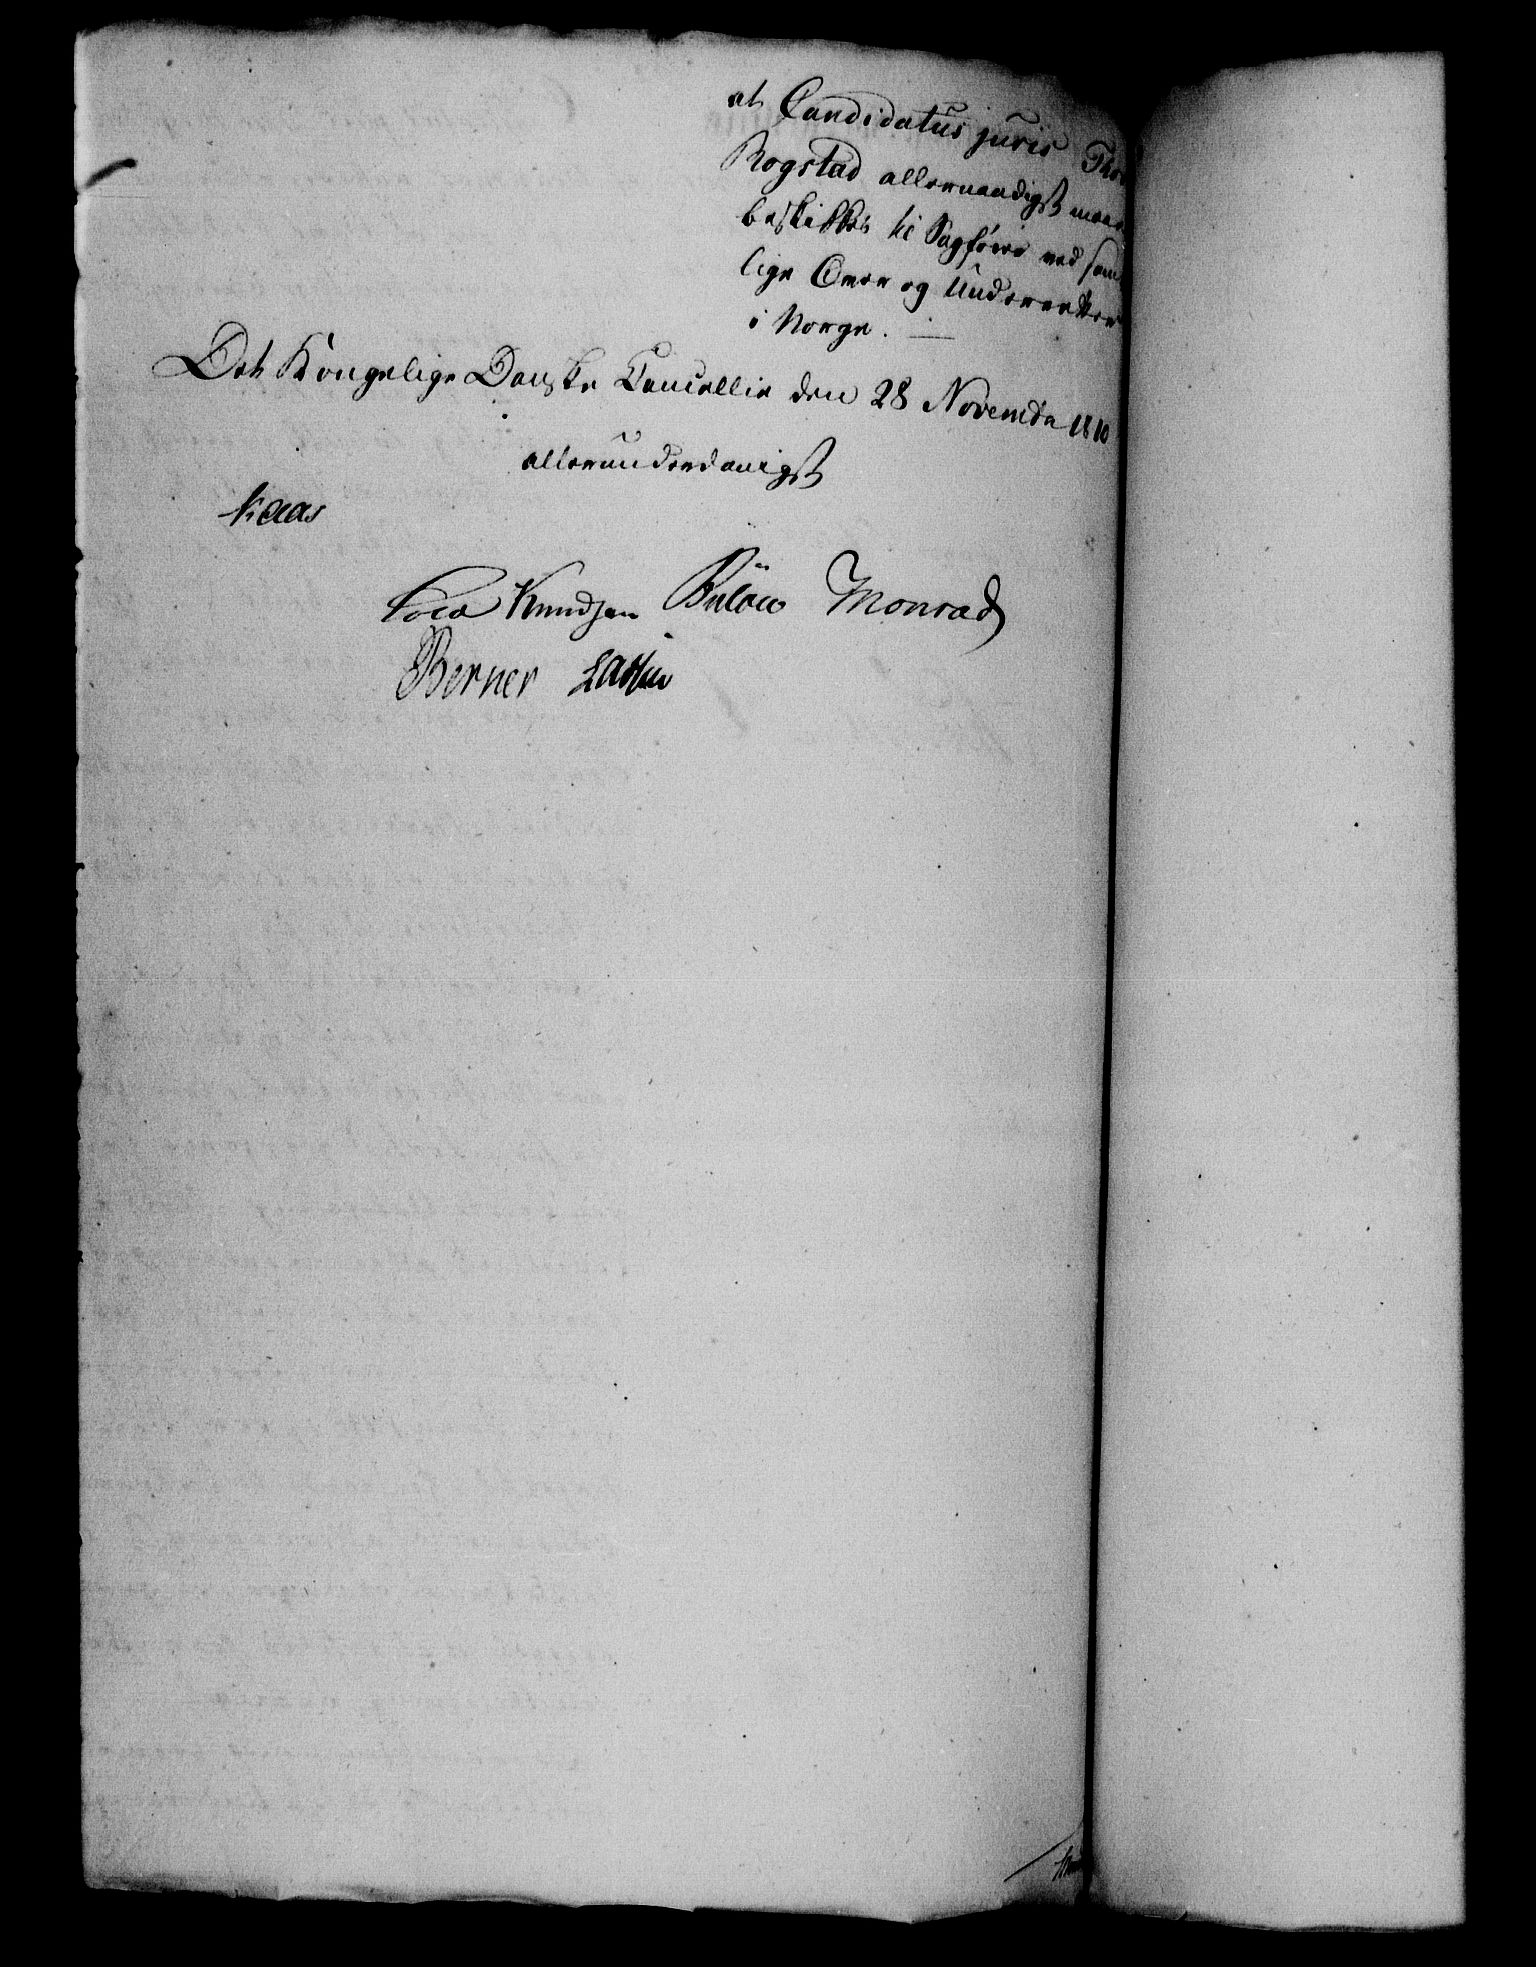 at Candidatus juris
Rogstad allernaadigst maae
beskikkes til Sagfører ved samt
lige Over og Underretter
i Norge. —
Det Kongelige Danske Cancellie den 28 Novembr 1810
allerunderdanigst
Kaas
Cold Knudsen Bülow Monrad
Berner Lassen